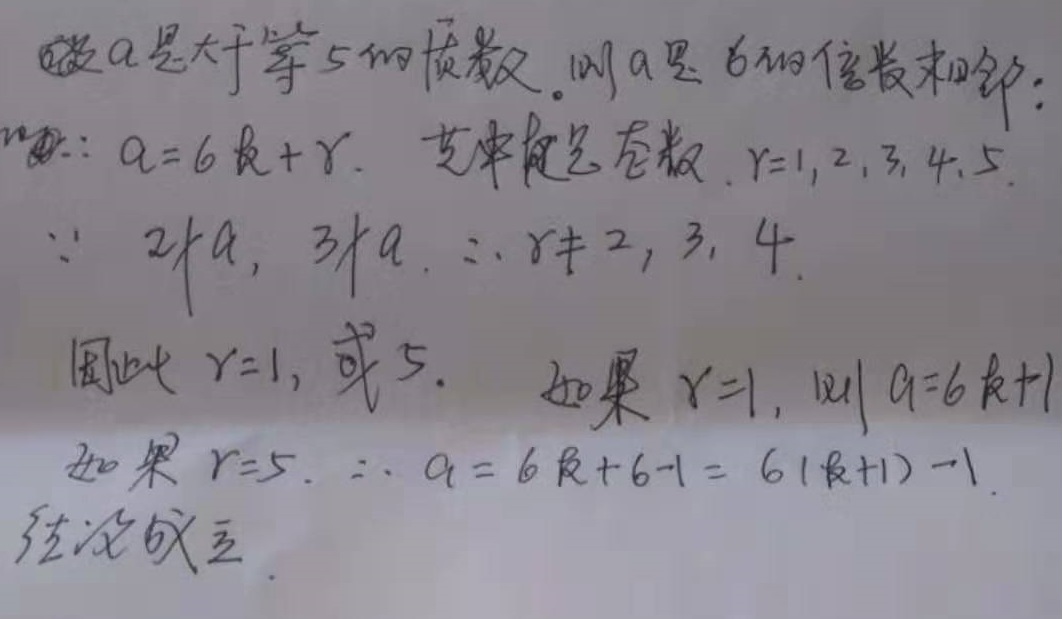 设a是大于等5的质数。则a是6的倍数相邻:
∴ a=6k+r. 其中k是整数. r=1,2,3,4,5.
∵ 2∤a, 3∤a. ∴ r≠2, 3, 4.
因此 r=1, 或5. 如果 r=1, 则 a=6k+1
如果 r=5. ∴ a=6k+6-1=6(k+1)-1.
结论成立.